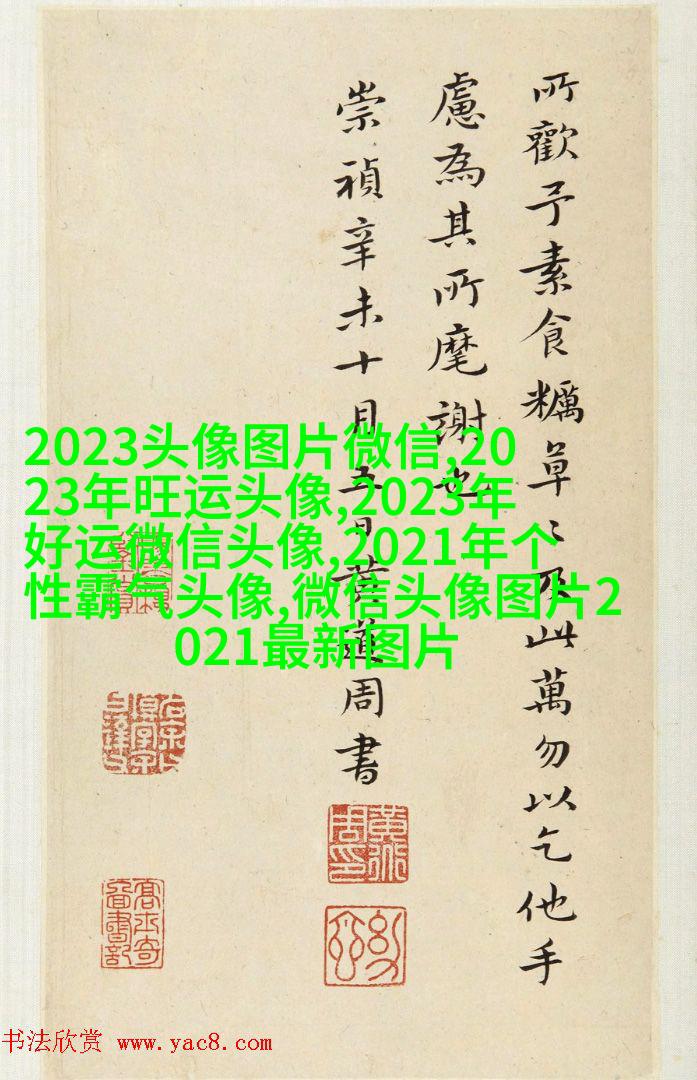 所歡予素食糲草〻及此萬勿以乞他手
慮為其所麾謝也
崇禎辛未十月五日黃道周書
2023头像图片微信,20
23年旺运头像,2023年
好运微信头像,2021年个
性霸气头像,微信头像图片2
021最新图片
高士奇圖書記
书法欣赏 www.yac8.com